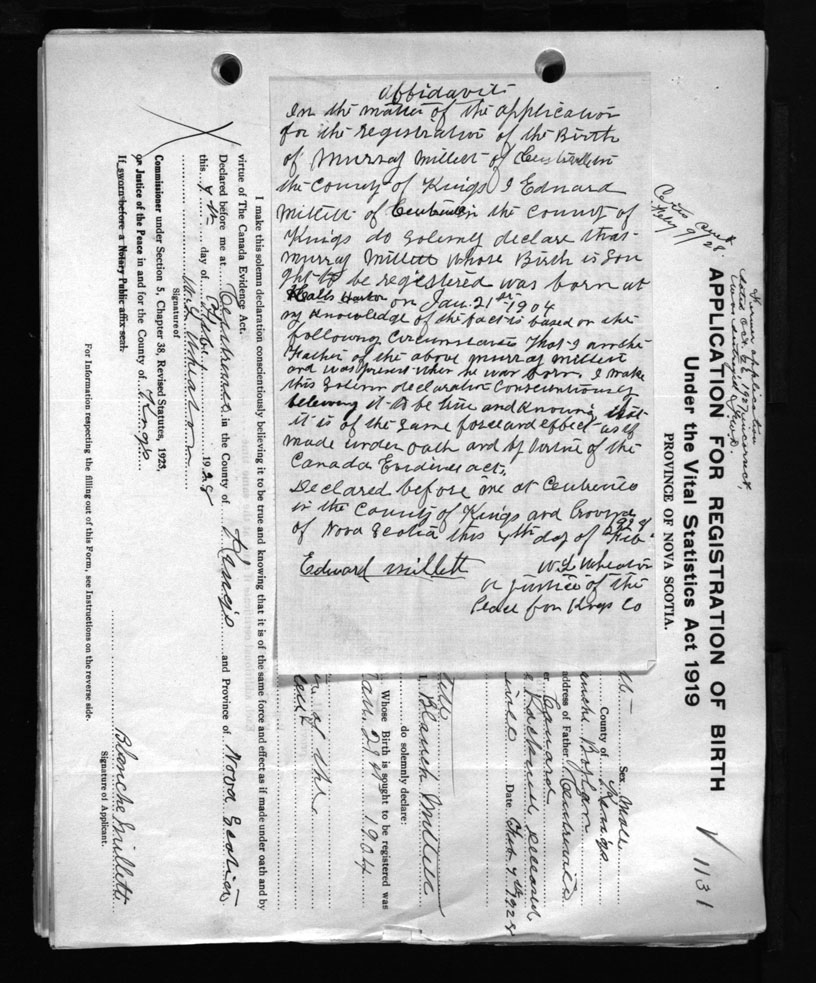 Affidavit
In the matter of the application
for the registration of the Birth
of Murray Millett of Centreville in
the County of Kings I Edward
Millett of Centreville in the County of
Kings do solemly declare that
Murray Millett whose Birth is Sou
ght to be registered was born at
Halls Harbor on Jan. 21st 1904
my knowledge of the fact is based on the
following Circumstances That I am the
Father of the above Murray Millett
and was present when he was born. I make
this Solemn declaration Conscientiously
believing it to be true and knowing that
it is of the same force and effect as if
made under oath and by virtue of the
Canada Evidence act.
Declared before me at Centreville
in the County of Kings and Province
of Nova Scotia this 4th day of Feb. 1928
Edward Millett
W. L. Wheaton
a justice of the
Peace for Kings Co
Former application
dated Oct. 26, 1927 incorrect,
APPLICATION FOR REGISTRATION OF BIRTH
Under the Vital Statistics Act 1919
PROVINCE OF NOVA SCOTIA.
V 1131
Sex Male
County of Kings
address of Father Centreville
Canard
deceased
Date Feb 4th 1928
I, Blanch Millett
do solemnly declare:
Whose Birth is sought to be registered was
Jan. 21st 1904
of the
I make this solemn declaration conscientiously believing it to be true and knowing that it is of the same force and effect as if made under oath and by
virtue of The Canada Evidence Act.
Declared before me at Centreville in the County of Kings and Province of Nova Scotia
this 4th day of Feb. 1928
W. L. Wheaton
Signature of
Commissioner under Section 5, Chapter 38, Revised Statutes, 1923,
or Justice of the Peace in and for the County of Kings
If sworn before a Notary Public affix seal.
Blanche Millett
Signature of Applicant.
For Information respecting the filling out of this Form, see Instructions on the reverse side.